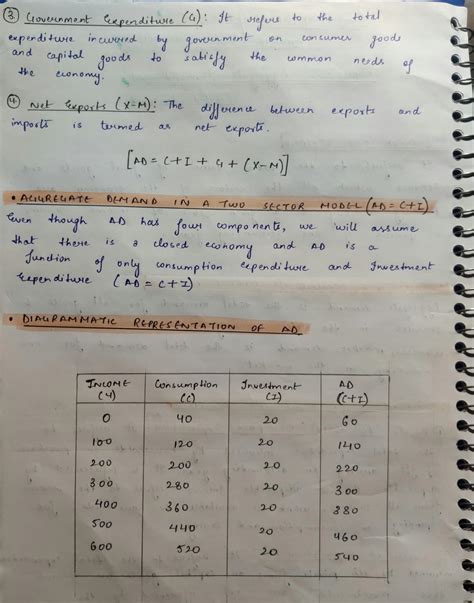 ③ Government Expenditure (G): It refers to the total
expenditure incurred by government on consumer goods
and capital goods to satisfy the common needs of
the economy.
④ Net Exports (X-M): The difference between exports and
imports is termed as net exports.
[AD = C+I + G + (X-M)]
• AGGREGATE DEMAND IN A TWO SECTOR MODEL (AD = C+I)
Even though AD has four components, we will assume
that there is a closed economy and AD is a
function of only consumption expenditure and Investment
Expenditure (AD = C+I)
• DIAGRAMMATIC REPRESENTATION OF AD
INCOME (Y) Consumption (C) Investment (I) AD (C+I)
0 40 20 60
100 120 20 140
200 200 20 220
300 280 20 300
400 360 20 380
500 440 20 460
600 520 20 540